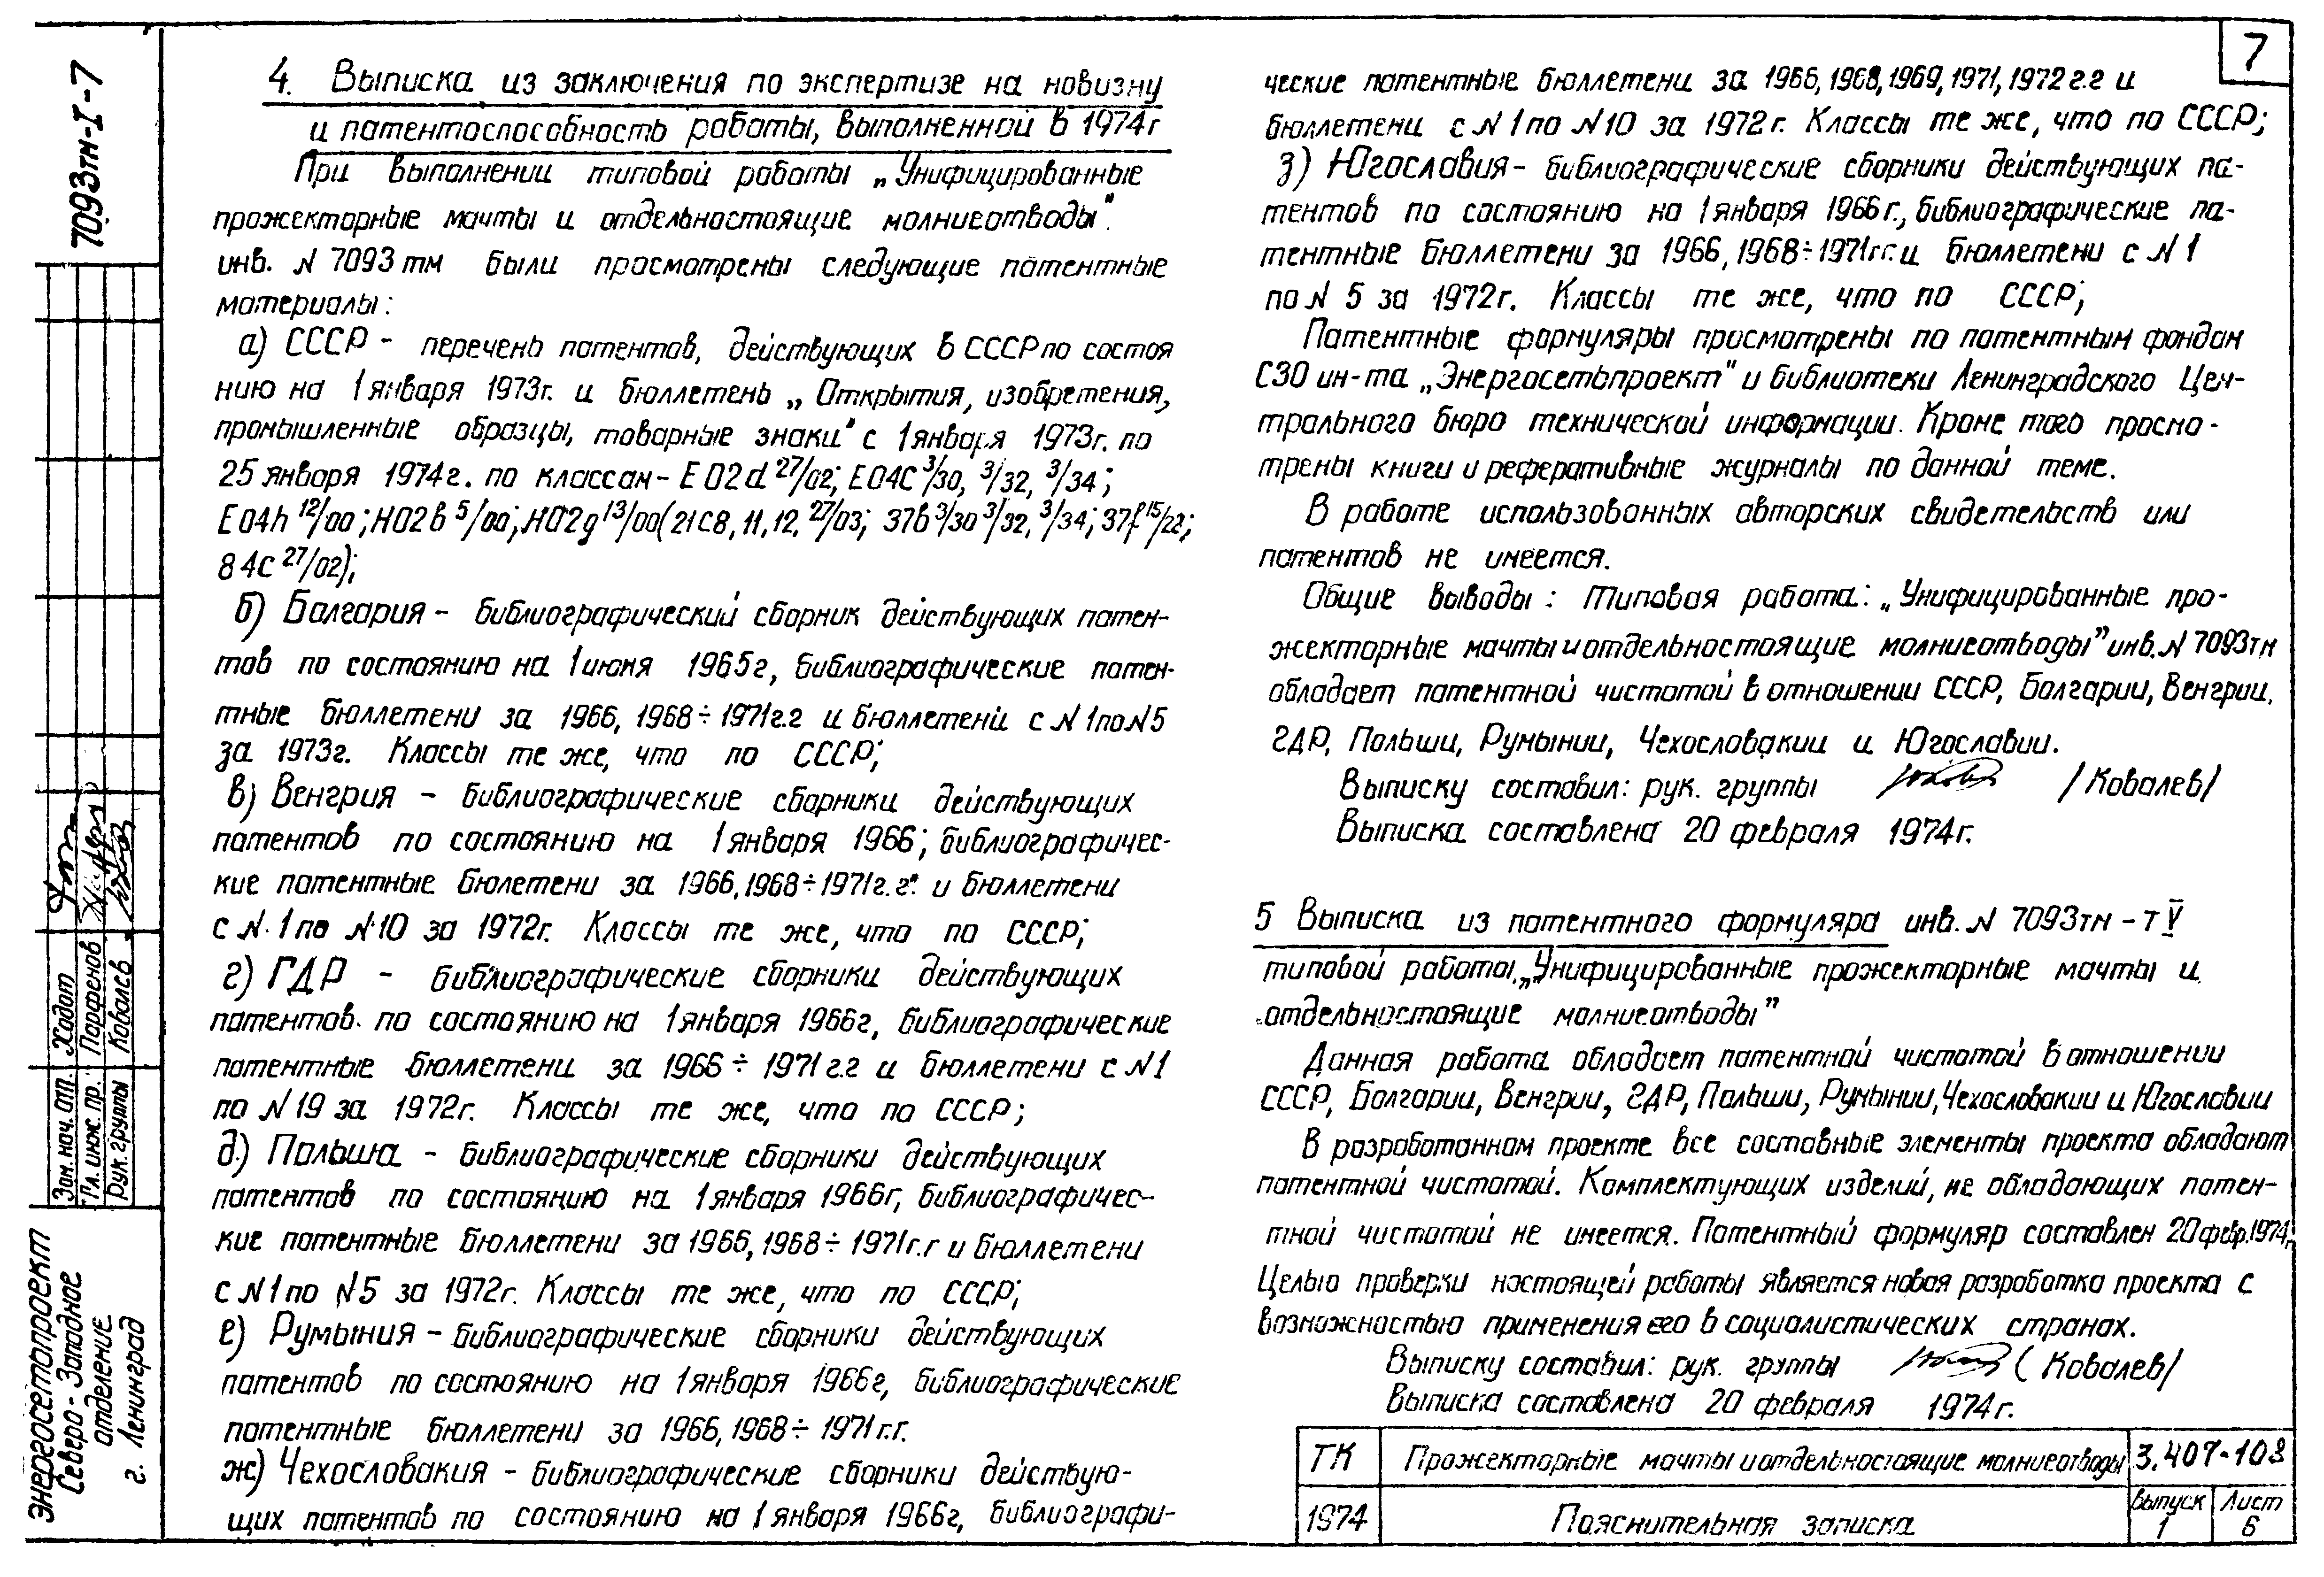 7
7093тм-I-7
4. Выписка из заключения по экспертизе на новизну
и патентоспособность работы, выполненной в 1974г
При выполнении типовой работы „Унифицированные
прожекторные мачты и отдельностоящие молниеотводы".
инв. N 7093тм были просмотрены следующие патентные
материалы:
а) СССР - перечень патентов, действующих в СССР по состоя
нию на 1 января 1973г. и бюллетень „Открытия, изобретения,
промышленные образцы, товарные знаки" с 1 января 1973г. по
25 января 1974г. по классам - E02d 27/02; E04C 3/30, 3/32, 3/34;
E04h 12/00; H02b 5/00; H02g 13/00 (21C8, 11, 12, 27/03; 37b 3/30 3/32, 3/34; 37f 15/22;
84C 27/02);
б) Болгария - библиографический сборник действующих патен-
тов по состоянию на 1 июня 1965г, библиографические патен-
тные бюллетени за 1966, 1968÷1971г.г и бюллетени с N1 по N5
за 1973г. Классы те же, что по СССР;
в) Венгрия - библиографические сборники действующих
патентов по состоянию на 1 января 1966; библиографичес-
кие патентные бюлетени за 1966, 1968÷1971г.г. и бюллетени
с N.1 по N.10 за 1972г. Классы те же, что по СССР;
г) ГДР - библиографические сборники действующих
патентов по состоянию на 1 января 1966г, библиографические
патентные бюллетени за 1966÷1971г.г и бюллетени с N1
по N19 за 1972г. Классы те же, что по СССР;
д) Польша - библиографические сборники действующих
патентов по состоянию на 1 января 1966г, библиографичес-
кие патентные бюллетени за 1966, 1968÷1971г.г и бюллетени
с N1 по N5 за 1972г. Классы те же, что по СССР;
е) Румыния - библиографические сборники действующих
патентов по состоянию на 1 января 1966г, библиографические
патентные бюллетени за 1966, 1968÷1971г.г.
ж) Чехословакия - библиографические сборники действую-
щих патентов по состоянию на 1 января 1966г, библиографи-
ческие патентные бюллетени за 1966, 1968, 1969, 1971, 1972г.г и
бюллетени с N1 по N10 за 1972г. Классы те же, что по СССР;
з) Югославия - библиографические сборники действующих па-
тентов по состоянию на 1 января 1966г., библиографические па-
тентные бюллетени за 1966, 1968÷1971гг. и бюллетени с N1
по N 5 за 1972г. Классы те же, что по СССР;
Патентные формуляры просмотрены по патентным фондам
СЗО ин-та „Энергосетьпроект" и библиотеки Ленинградского Цен-
трального бюро технической информации. Кроме того просмо-
трены книги и реферативные журналы по данной теме.
В работе использованных авторских свидетельств или
патентов не имеется.
Общие выводы: типовая работа: „Унифицированные про-
жекторные мачты и отдельностоящие молниеотводы" инв. N 7093тм
обладает патентной чистотой в отношении СССР, Болгарии, Венгрии,
ГДР, Польши, Румынии, Чехословакии и Югославии.
Выписку составил: рук. группы /Ковалев/
Выписка составлена 20 февраля 1974г.
5 Выписка из патентного формуляра инв. N 7093тм - т V
типовой работы „Унифицированные прожекторные мачты и
отдельностоящие молниеотводы"
Данная работа обладает патентной чистотой в отношении
СССР, Болгарии, Венгрии, ГДР, Польши, Румынии, Чехословакии и Югославии
В разработанном проекте все составные элементы проекта обладают
патентной чистотой. Комплектующих изделий, не обладающих патен-
тной чистотой не имеется. Патентный формуляр составлен 20 февр. 1974г.
Целью проверки настоящей работы является новая разработка проекта с
возможностью применения его в социалистических странах.
Выписку составил: рук. группы (Ковалев/
Выписка составлена 20 февраля 1974г.
Зам. нач. от. Ходот
Гл. инж. пр. Парфенов
Рук. группы Ковалев
Энергосетопроект
Северо-Западное
отделение
г. Ленинград
ТК Прожекторные мачты и отдельностоящие молниеотводы 3.407-108
1974 Пояснительная записка Выпуск 1 Лист 6